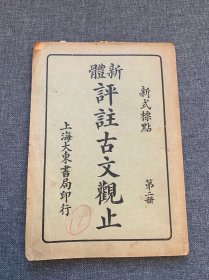 新式標點
第二冊
新體
評註古文觀止
上海大東書局印行